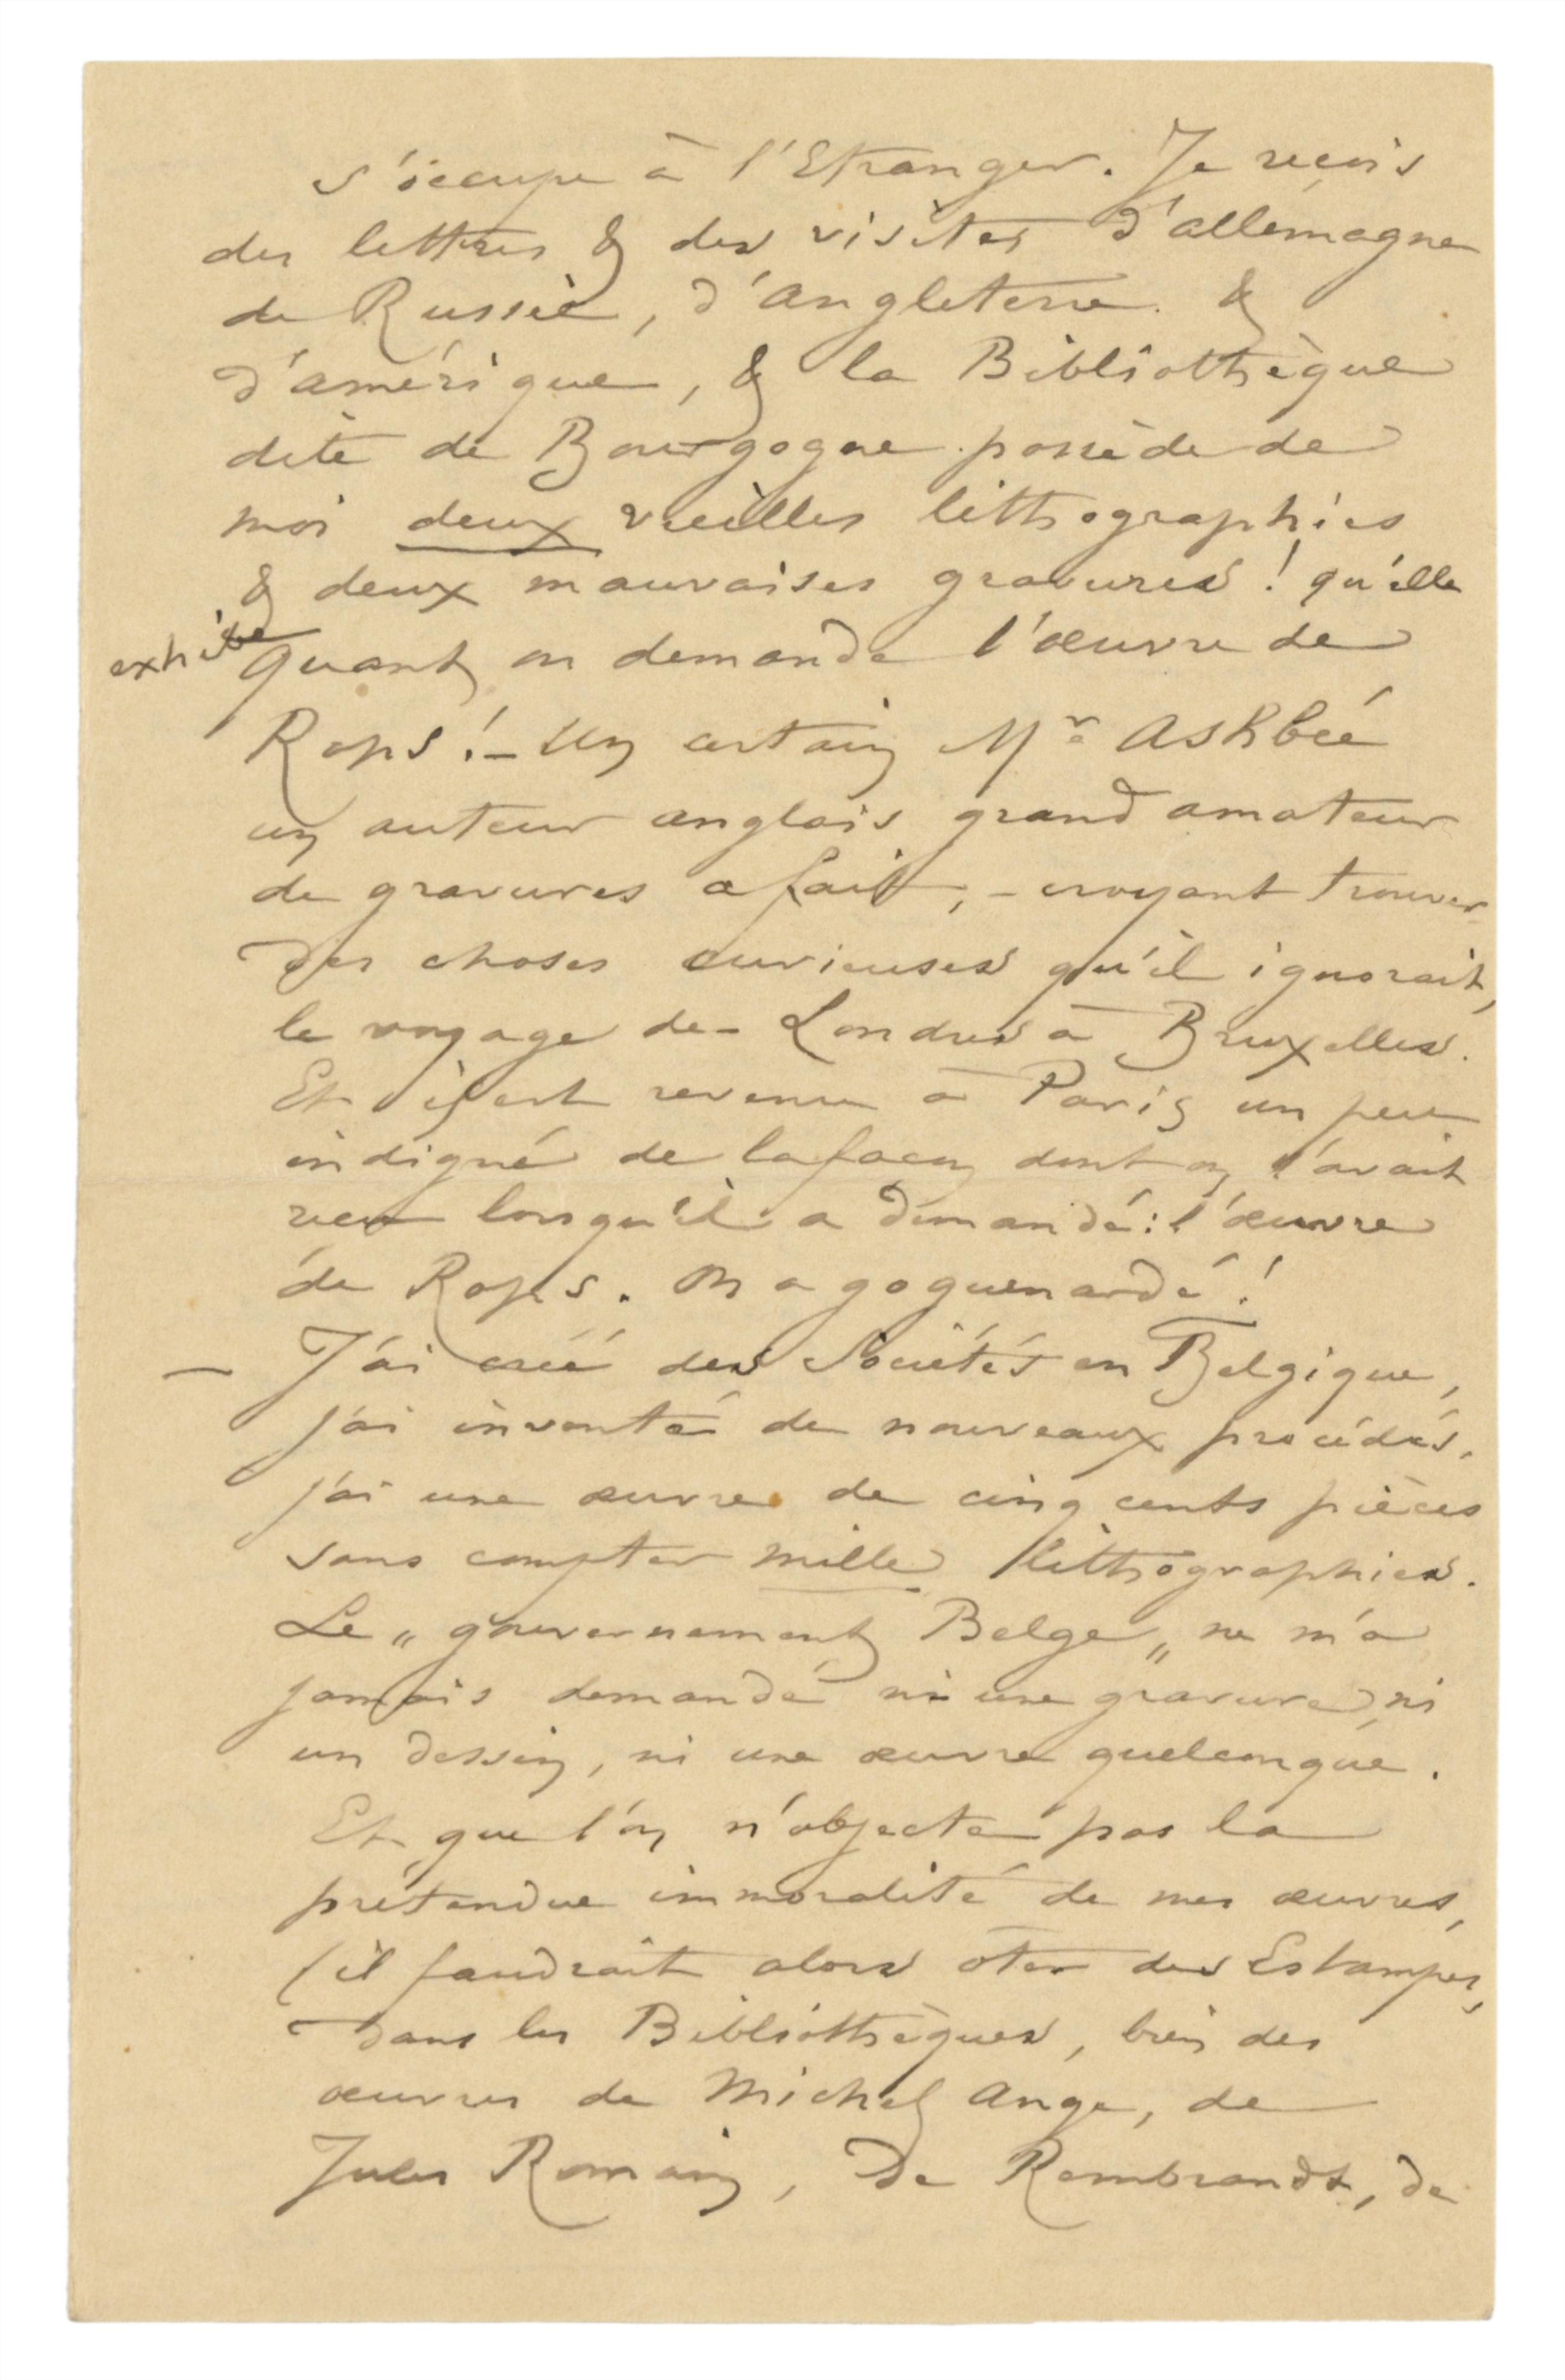 s'occupe à l'Etranger. Je reçois
des lettres & des visites d'allemagne
de Russie, d'angleterre. &
d'amérique, & la Bibliothèque
dite de Bourgogne possède de
moi deux vieilles lithographies
& deux mauvaises gravures! qu'elle
exhibe quant on demande l'œuvre de
Rops! – Un certain Mr Ashbéé
un auteur anglais grand amateur
de gravures a fait, – croyant trouver
des choses curieuses qu'il ignorait,
le voyage de – Londres à Bruxelles.
Et il est revenu à Paris un peu
indigné de la façon dont on l'avait
reçu lorsqu'il a demandé: l'œuvre
de Rops. On a goguenardé!
– J'ai créé des Sociétés en Belgique,
j'ai inventé de nouveaux procédés,
j'ai une œuvre de cinq cents pièces
sans compter mille lithographies.
Le „ gouvernement Belge „ ne m'a
jamais demandé ni une gravure, ni
un dessin, ni une œuvre quelconque.
Et que l'on n'objecte pas la
prétendue immoralité de mes œuvres,
(il faudrait alors ôter des Estampes,
dans les Bibliothèques, bien des
œuvres de Michel Ange, de
Jules Romain, De Rembrandt, de